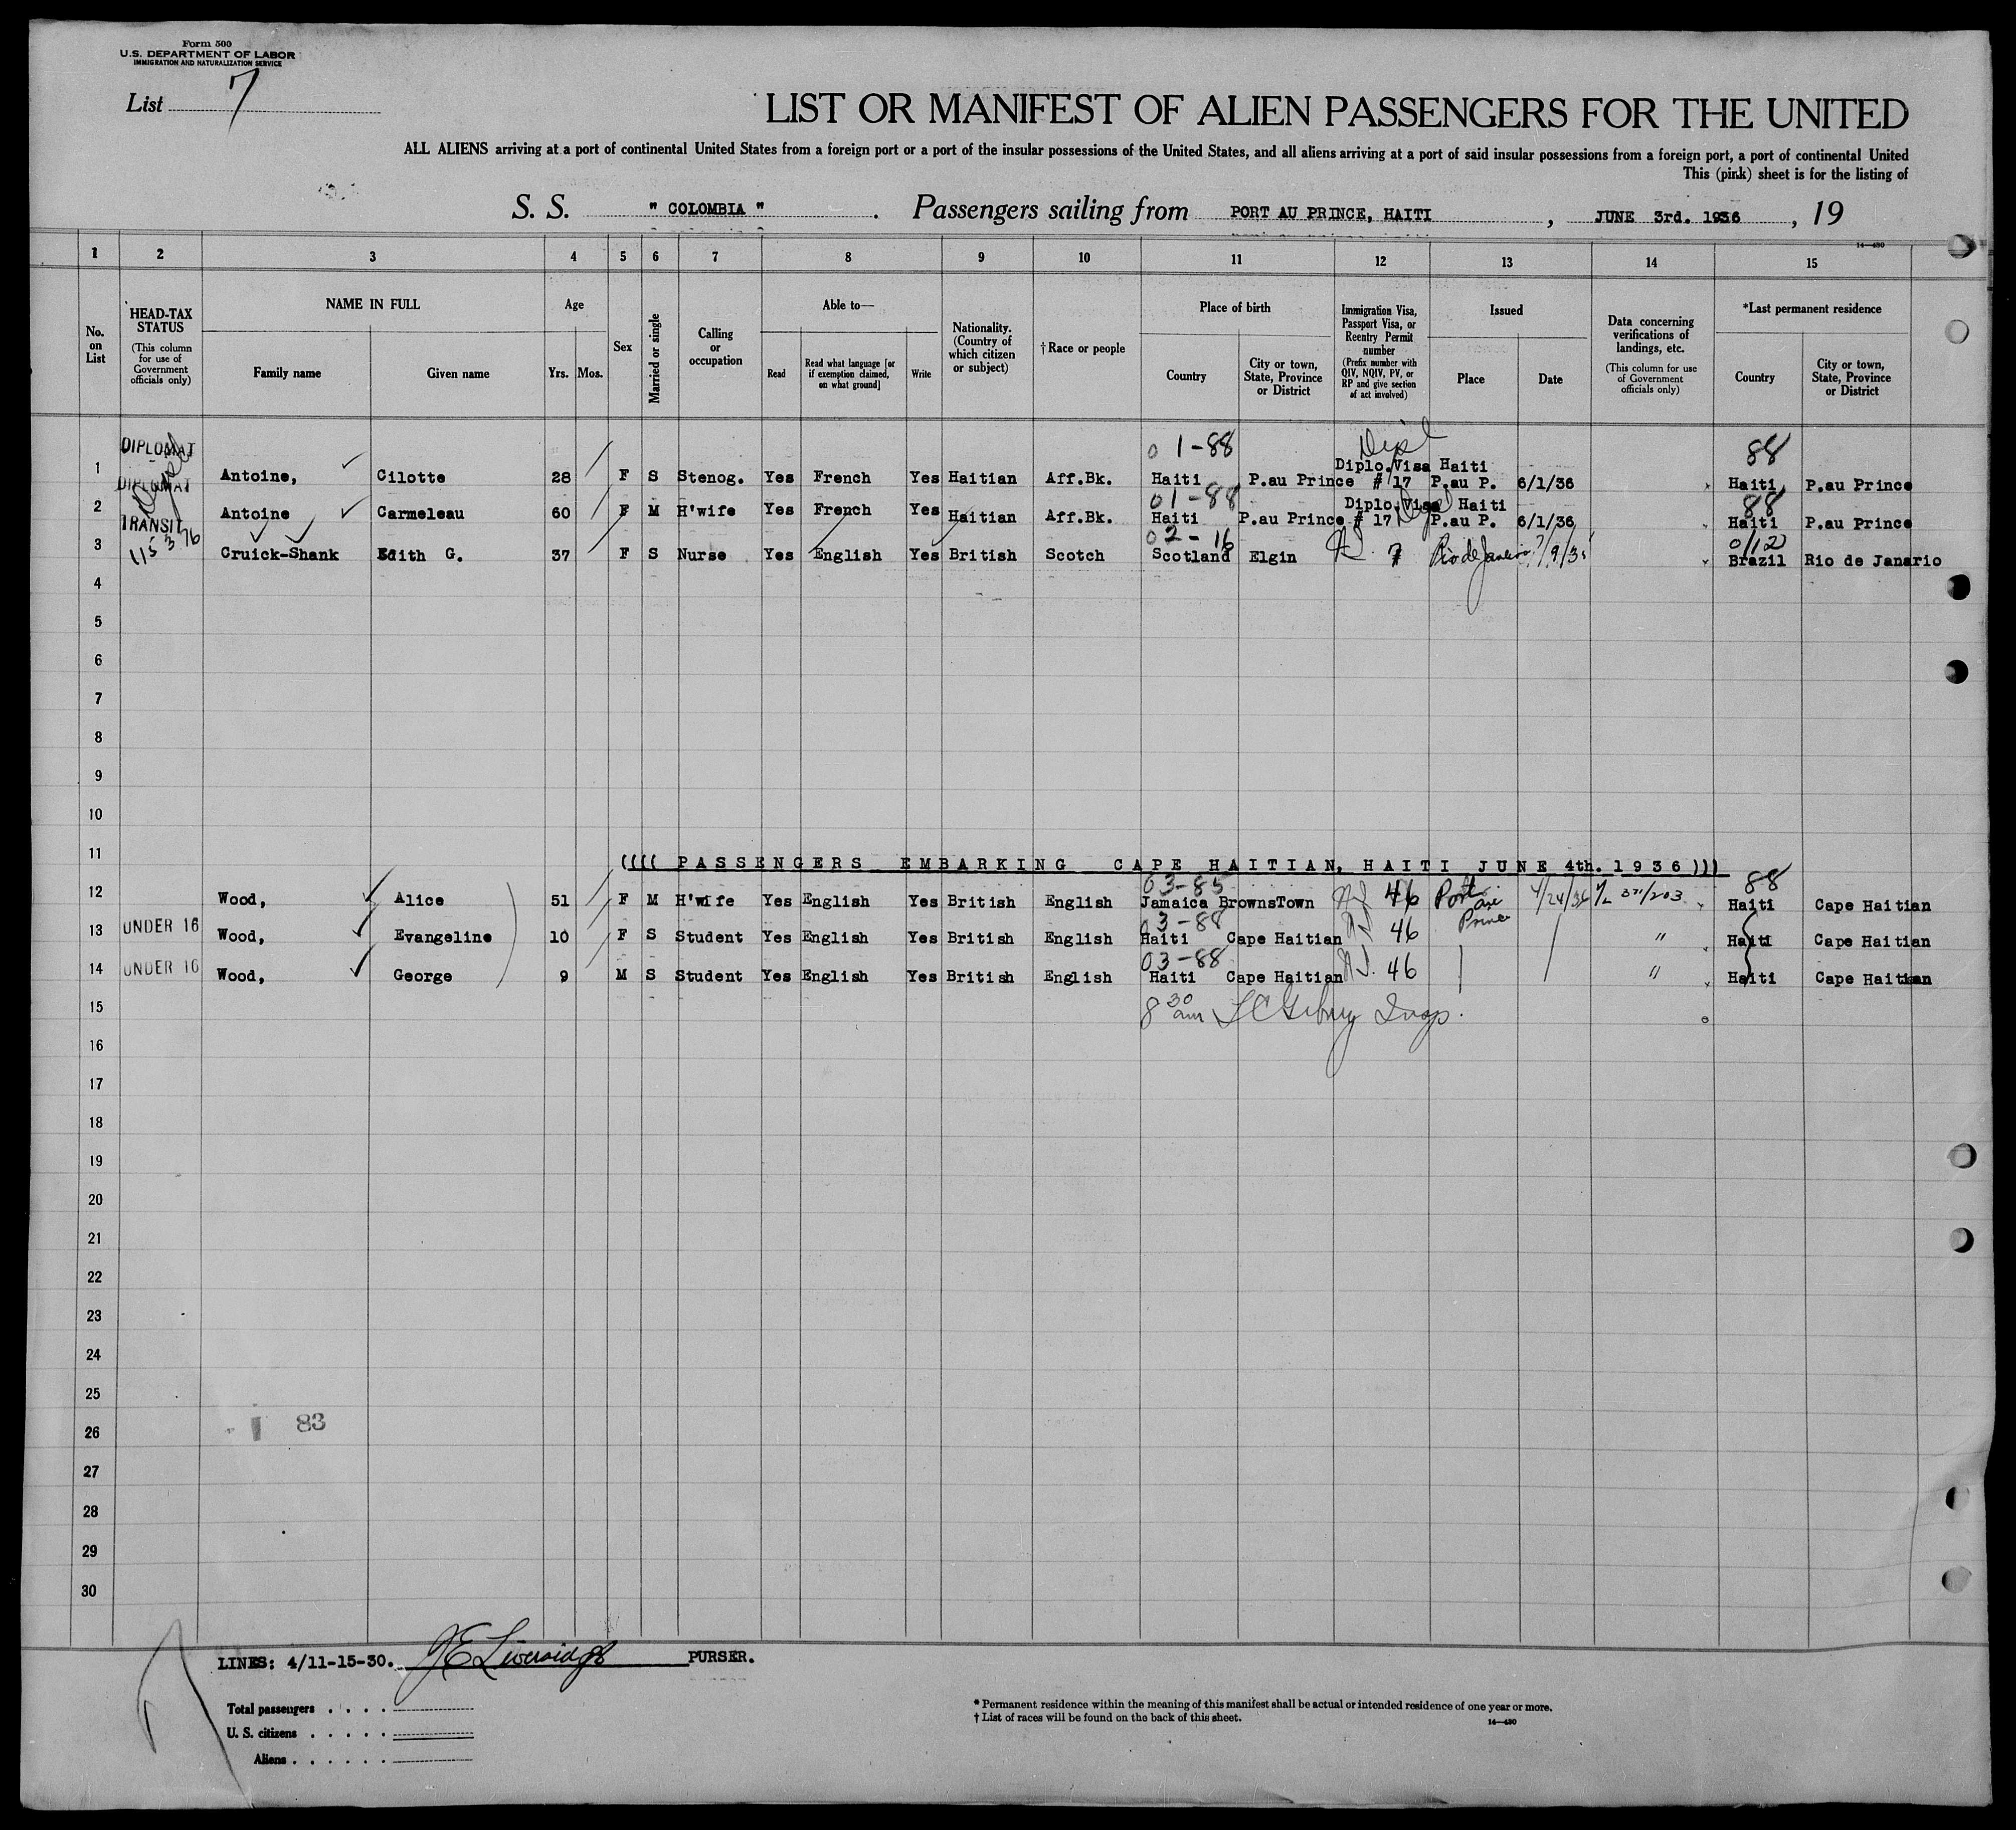 Form 500
U.S. DEPARTMENT OF LABOR
IMMIGRATION AND NATURALIZATION SERVICE
List 7
LIST OR MANIFEST OF ALIEN PASSENGERS FOR THE UNITED
ALL ALIENS arriving at a port of continental United States from a foreign port or a port of the insular possessions of the United States, and all aliens arriving at a port of said insular possessions from a foreign port, a port of continental United
This (pink) sheet is for the listing of
S. S. " COLOMBIA " . Passengers sailing from PORT AU PRINCE, HAITI , JUNE 3rd. 1936 , 19
14—480
1 2 3 4 5 6 7 8 9 10 11 12 13 14 15
No. on List
HEAD-TAX STATUS
(This column for use of Government officials only)
NAME IN FULL
Family name
Given name
Age
Yrs. Mos.
Sex
Married or single
Calling or occupation
Able to—
Read
Read what language [or if exemption claimed, on what ground]
Write
Nationality. (Country of which citizen or subject)
† Race or people
Place of birth
Country
City or town, State, Province or District
Immigration Visa, Passport Visa, or Reentry Permit number
(Prefix number with QIV, NQIV, PV, or RP and give section of act involved)
Issued
Place
Date
Data concerning verifications of landings, etc.
(This column for use of Government officials only)
*Last permanent residence
Country
City or town, State, Province or District
DIPLOMAT 01-88 Dipl 88
1 Antoine, Cilotte 28 F S Stenog. Yes French Yes Haitian Aff.Bk. Haiti P.au Prince Diplo.Visa # 17 Haiti P.au P. 6/1/36 Haiti, P.au Prince
DIPLOMAT 01-88 Dipl 88
2 Antoine Carmeleau 60 F M H'wife Yes French Yes Haitian Aff.Bk. Haiti P.au Prince Diplo.Visa # 17 Haiti P.au P. 6/1/36 Haiti P.au Prince
TRANSIT 02-16 0/12
3 Cruick-Shank Edith G. 37 F S Nurse Yes English Yes British Scotch Scotland Elgin 7 Rio de Janeiro Brazil Rio de Janario
4
5
6
7
8
9
10
11 (((( PASSENGERS EMBARKING CAPE HAITIAN, HAITI JUNE 4th. 1936 )))
03-85 88
12 Wood, Alice 51 F M H'wife Yes English Yes British English Jamaica BrownsTown 46 Port au Prince 4/24/36 Haiti Cape Haitian
03-88
13 UNDER 16 Wood, Evangeline 10 F S Student Yes English Yes British English Haiti Cape Haitian 46 " Haiti Cape Haitian
03-88
14 UNDER 16 Wood, George 9 M S Student Yes English Yes British English Haiti Cape Haitian 46 " Haiti Cape Haitian
15 8 30 am Insp.
16
17
18
19
20
21
22
23
24
25
26 83
27
28
29
30
LINES: 4/11-15-30. PURSER.
Total passengers . . . .
U. S. citizens . . . . .
Aliens . . . . . .
* Permanent residence within the meaning of this manifest shall be actual or intended residence of one year or more.
† List of races will be found on the back of this sheet.
14—480